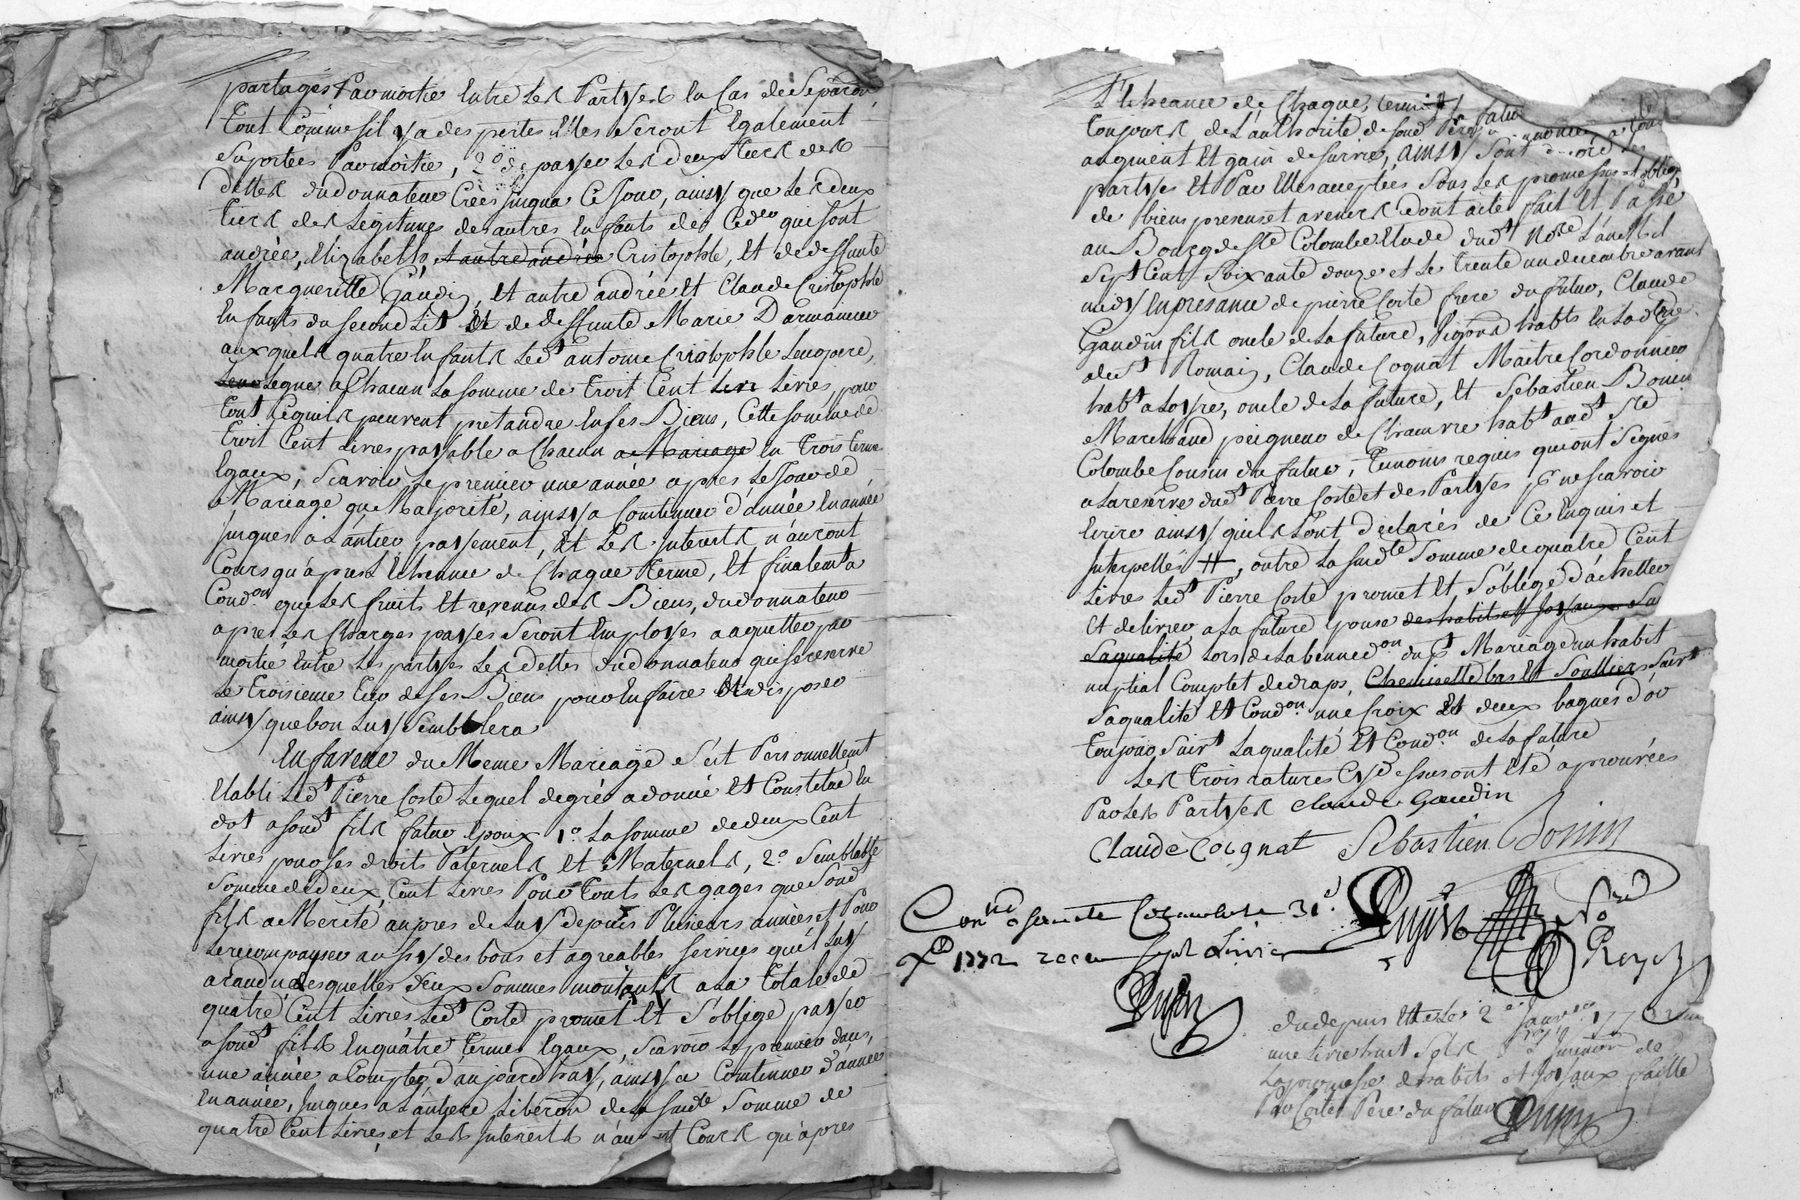 partagés Par moitie Entre Les Partyes En Cas de Separõn,
tout Comme s'il y a des pertes Elles Seront Egalement
Suportées Par moitie, 2° de payer Les deux tiers des
dettes du donnateur Créés jusqua Ce Jour, ainsy que Les deux
tiers des Légitimes des autres Enfants de qui sont
andrée, Elizabeth, et autre andrée Cristophle, Et de deffunte
Margueritte Gaudin, Et autre andrée Et Claude Cristophle
Enfants du second Lit Et de deffunte Marie Darmancier
auxquels quatre Enfants Ledt antoine Cristophle Leur pere,
Leur Legue a Chacun La somme de trois Cent Livres, pour
tout Ce quils peuvent pretandre En ses Biens, Cette somme de
trois Cent Livres payable a Chacun a Mariage En trois termes
Egaux, Scavoir Le premier une année apres Le Jour de
Mariage ou Majorité, ainsy a Continuer d'année En année
jusques a L'antier payement, Et Les Interests n'auront
Cours qu'après L'Eheance de Chaque terme, Et finalemt a
Condon que Les fruits Et revenus des Biens, du donnateur
apres Les Charges payes Seront Employes a aquitter par
moitié Entre Les partyes Les dettes du donnateur qui se reserve
Le troisieme tier de ses Biens pour En faire Et disposer
ainsy que bon Luy Semblera
En faveur du Meme Mariage S'est Personnellemt
Etabli Ledt Pierre Coste Lequel de gré a donné Et Constitué En
dot a sondt fils futur Epoux 1° La somme de deux Cent
Livres pour ses droits Paternels Et Maternels, 2° Semblable
somme de deux Cent Livres Pour tout Les gages que Sond
fils a Merité aupres de Luy depuis Plusieurs années et Pour
Le recompanser aussy des bons et agreables services qu'il Luy
a randu desquelles deux Sommes montants a La totale de
quatre Cent Livres Ledt Coste promet Et S'oblige payer
a sondt fils En quatre termes Egaux, Scavoir Le premier dans
une année a Compter d'aujourd'huy, ainsy a Continuer d'année
En année, jusques a L'antiere Liberon de La sudte Somme de
quatre Cent Livres, et Les Interests n'auront Cours qu'apres
L'Eheance de Chaque terme
toujours de L'authorité de sond Pere
augment Et gain de survie, ainsy Sont
partyes Et Par Elles acceptées Sous Les promesses Et oblig
de biens presens et avenirs dont acte fait Et Passé
au Bourg de Ste Colombe Etude dudt Nore L'an Mil
Sept Cent Soixante douze et Le trente un decembre avant
midy En presance de pierre Coste frere du futur, Claude
Gaudin fils oncle de La future, habts En
de St Romain, Claude Cognat Maitre Cordonnier
habt a Loyre, oncle de La future, Et Sebastien Bonin
Marchand peigneur de Chanvre habt audt Ste
Colombe Cousin du futur, temoins requis qui ont Signés
a La reserve dudt Pierre Coste et des Partyes p ne scavoir
Ecrire ainsy quils L'ont declarés de Ce Enquis et
Interpellés #, outre La susdte Somme de quatre Cent
Livres Ledt Pierre Coste promet Et S'oblige d'achetter
Et delivrer a La future Epouse des habits Et Joyaux Sa
Sa qualité Lors de La benediction du d Mariage un habit
nuptial Complet de draps, Chemisette bas Et Soulliers, Suivt
Sa qualité Et Condon une Croix Et deux bagues d'or
toujour Suivt La qualité Et Condon de La future
Les trois ratures Cy dessus ont Eté aprouvées
Par Les Partyes Claude Gaudin
Claude Cognat Sebastien Bonin
a sainte Colombe Le 31e
Xbre 1772 recu sept Livres
du depuis Et Le 2e Janvier 1773
une Livre huit Sols
La promesse d'habits et Joyaux faitte
Par Coste Pere du futur